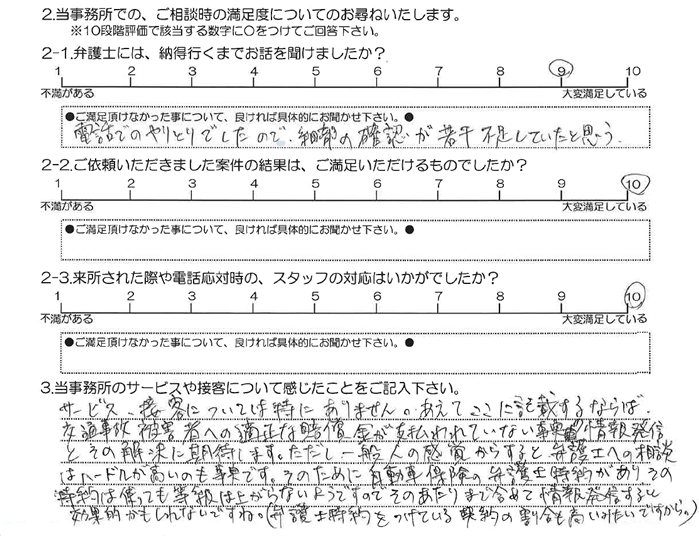 2.当事務所での、ご相談時の満足度についてのお尋ねいたします。
※10段階評価で該当する数字に〇をつけてご回答下さい。
2-1.弁護士には、納得行くまでお話を聞けましたか？
1 2 3 4 5 6 7 8 9 10
不満がある 大変満足している
●ご満足頂けなかった事について、良ければ具体的にお聞かせ下さい。●
電話でのやりとりでしたので、細部の確認が若干不足していたと思う。
2-2.ご依頼いただきました案件の結果は、ご満足いただけるものでしたか？
1 2 3 4 5 6 7 8 9 10
不満がある 大変満足している
●ご満足頂けなかった事について、良ければ具体的にお聞かせ下さい。●
2-3.来所された際や電話応対時の、スタッフの対応はいかがでしたか？
1 2 3 4 5 6 7 8 9 10
不満がある 大変満足している
●ご満足頂けなかった事について、良ければ具体的にお聞かせ下さい。●
3.当事務所のサービスや接客について感じたことをご記入下さい。
サービス、接客については特にありません。あえてここに記載するならば、
交通事故被害者への適正な賠償金が支払われていない事実の情報発信
とその解決に期待します。ただし一般人の感覚からすると弁護士への相談
はハードルが高いのも事実です。そのために自動車保険の弁護士特約がありその
特約は使っても等級は上がらないようですのでそのあたりまで含めて情報発信すると
効果的かもしれないですね。(弁護士特約をつけている契約の割合も高いみたいですから。)